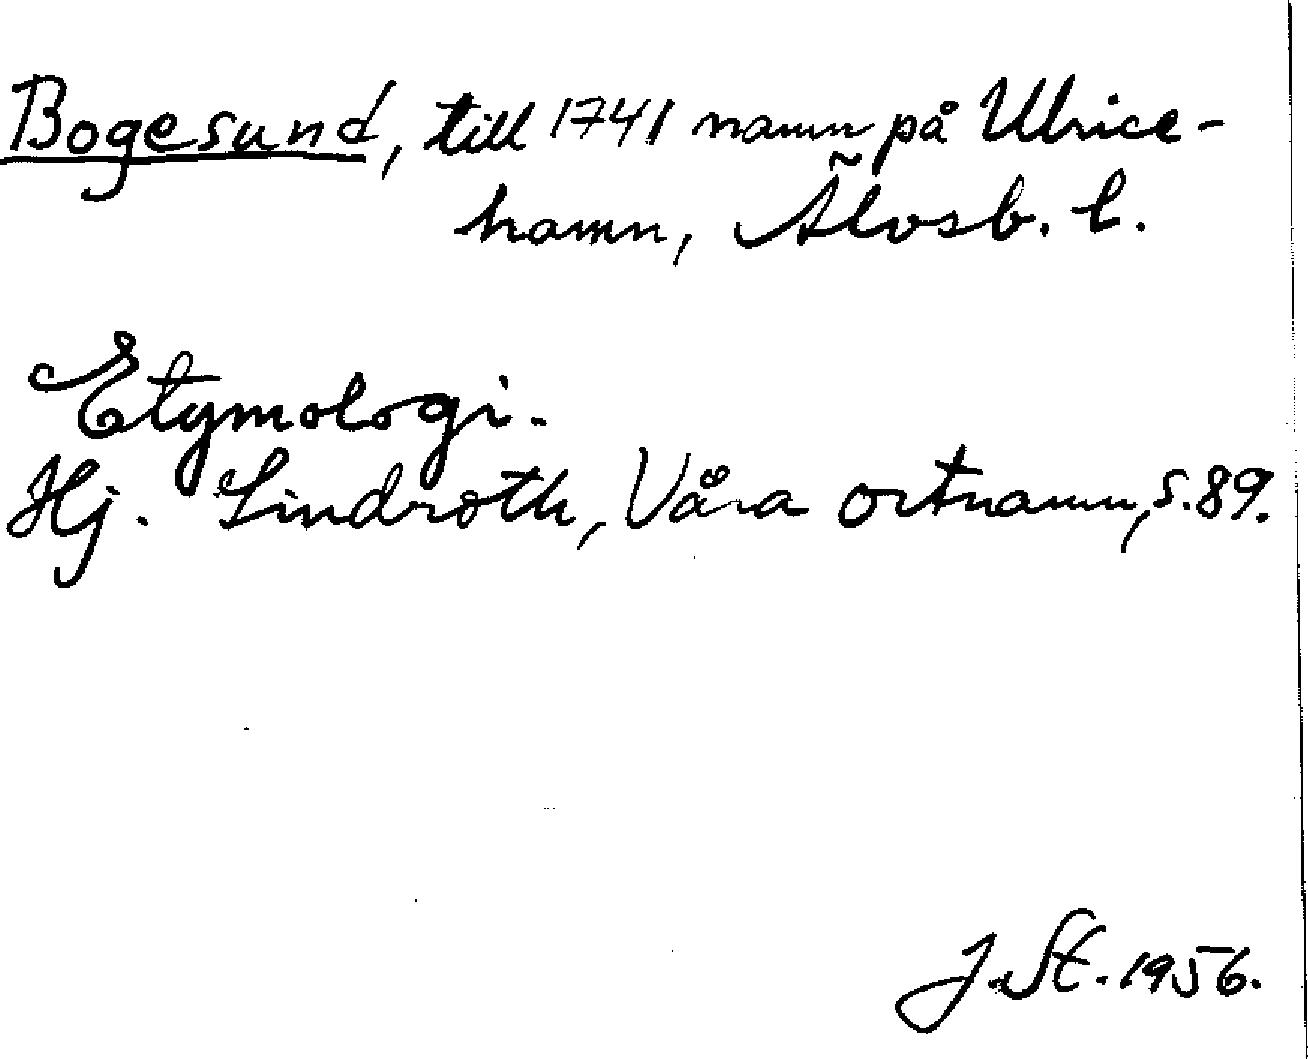 Bogesund, till 1741 namn på Ulrice-
hamn, Älvsb. l.
Etymologi.
Hj. Lindroth, Våra ortnamn, s. 89.
J. St. 1956.